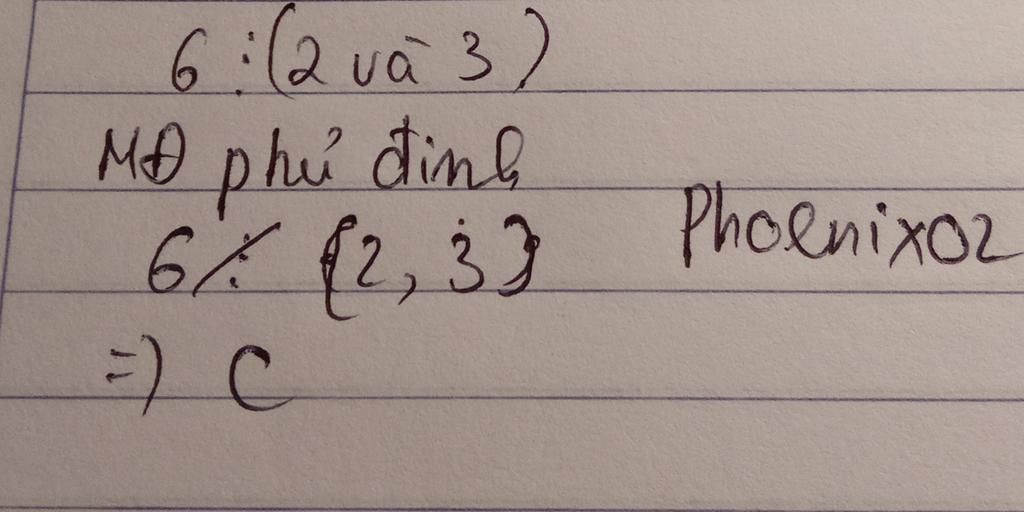 6 ⋮ (2 và 3)
MĐ phủ định
6 ⋮̸ {2, 3}
Phoenix02
=) C